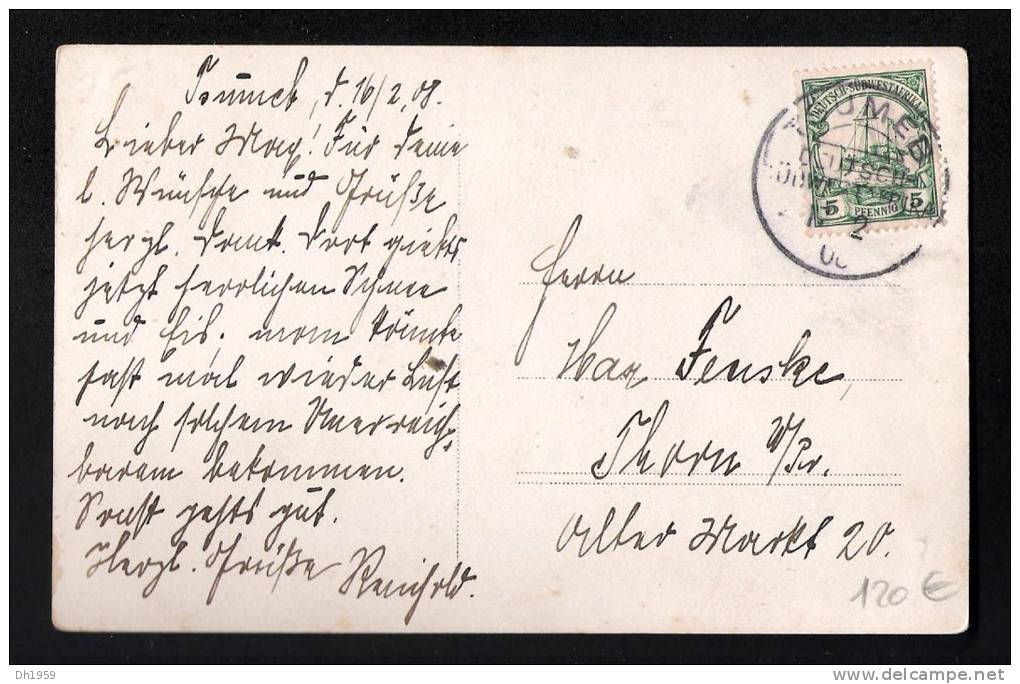 Tsumeb, d. 16/2.08.
Lieber Max! Für Deine
l. Wünsche und Grüße
herzl. Dank. Dort giebts
jetzt herrlichen Schnee
und Eis. man könnte
fast mal wieder Lust
nach solchem Unerreich-
barem bekommen.
Sonst gehts gut.
Herzl. Grüße Reinhold.
DEUTSCH-SÜDWESTAFRIKA
5 PFENNIG 5
TSUMEB
DEUTSCH-
SÜDWESTAFRIKA
2
08
Herrn
Max Fenske,
Thorn W/Pr.
Alter Markt 20.
120 €
DH1959
delcampe.net